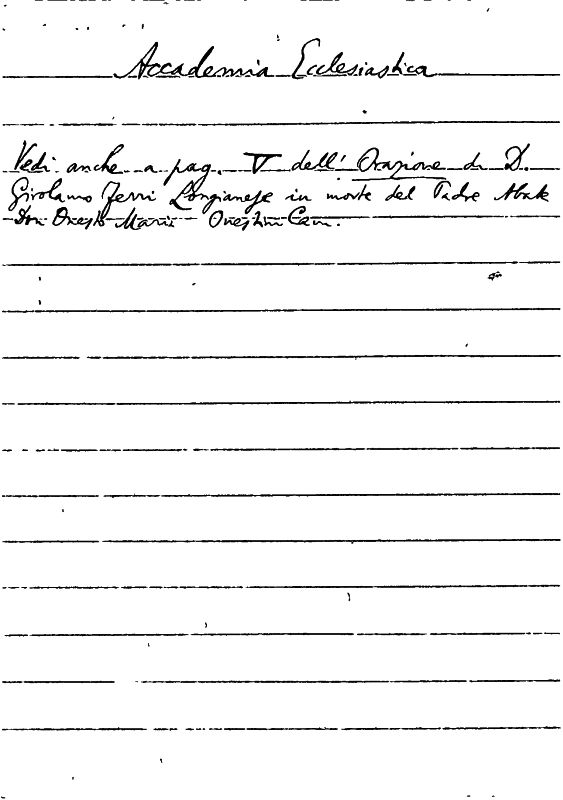 Accademia Ecclesiastica
Vedi anche a pag. V dell' Orazione di D.
Girolamo Ferri Longianese in morte del Padre Abate
Don Onesto Maria Onestini Cam.